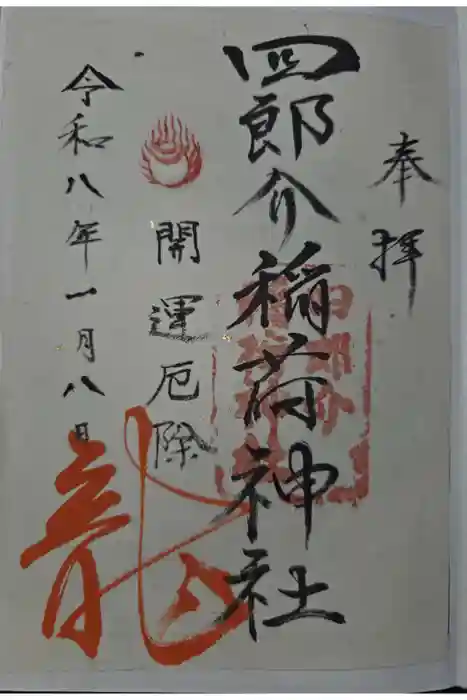 奉拝
四郎介稲荷神社
開運厄除
令和八年一月八日
龍